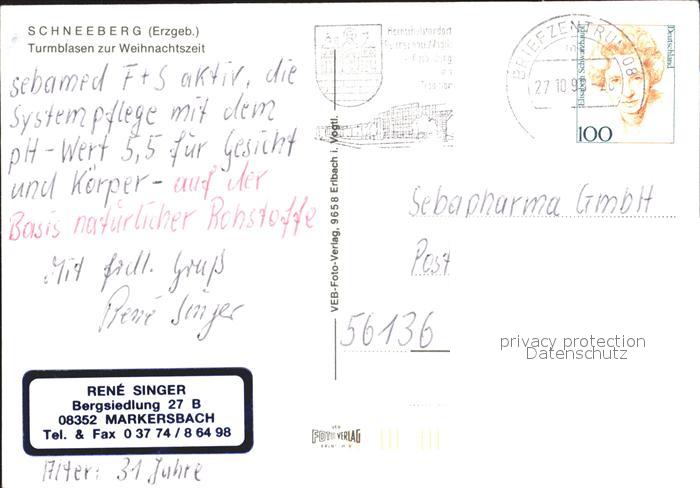 SCHNEEBERG (Erzgeb.)
Turmblasen zur Weihnachtszeit
sebamed F+S aktiv, die
Systempflege mit dem
pH-Wert 5,5 für Gesicht
und Körper - auf der
Basis natürlicher Rohstoffe
Mit frdl. Gruß
René Singer
RENÉ SINGER
Bergsiedlung 27 B
08352 MARKERSBACH
Tel. & Fax 0 37 74 / 8 64 98
Alter: 31 Jahre
VEB-Foto-Verlag, 9658 Erlbach i. Vogtl.
BRIEFZENTRUM 08
27.10.9
Deutschland
Elisabeth Schwarzhaupt
100
Sebapharma GmbH
Post
56136
privacy protection
Datenschutz
FOTO VERLAG